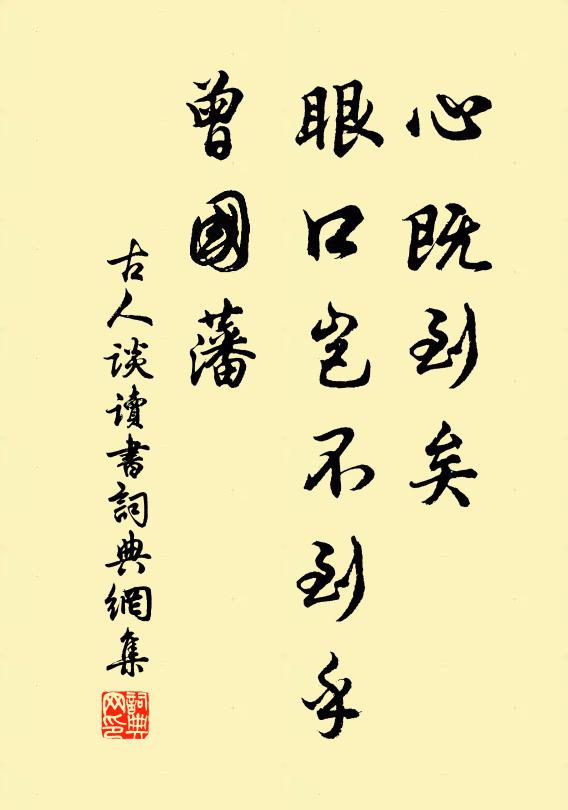 心既到矣
眼口岂不到乎
曾國藩
古人谈讀書詞典網集
詞典网印